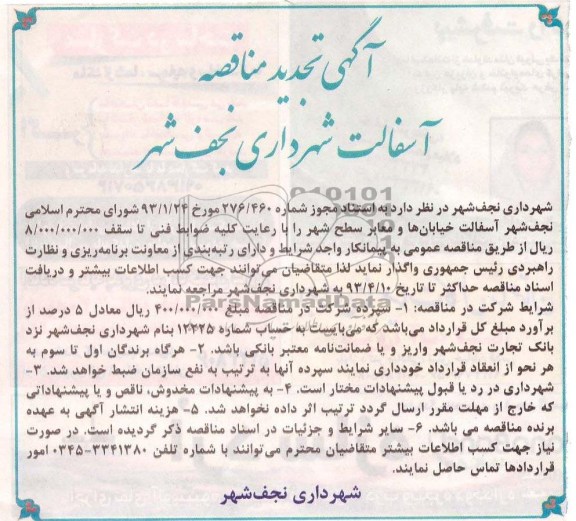 آگهی تجدید مناقصه
آسفالت شهرداری نجف شهر
شهرداری نجف‌شهر در نظر دارد به استناد مجوز شماره ۲۷۶/۴۶۰ مورخ ۹۳/۱/۲۴ شورای محترم اسلامی
نجف‌شهر آسفالت خیابان‌ها و معابر سطح شهر را با رعایت کلیه ضوابط فنی تا سقف ۸/۰۰۰/۰۰۰/۰۰۰
ریال از طریق مناقصه عمومی به پیمانکار واجد شرایط و دارای رتبه‌بندی از معاونت برنامه‌ریزی و نظارت
راهبردی رئیس جمهوری واگذار نماید لذا متقاضیان می‌توانند جهت کسب اطلاعات بیشتر و دریافت
اسناد مناقصه حداکثر تا تاریخ ۹۳/۴/۱۰ به شهرداری نجف‌شهر مراجعه نمایند.
شرایط شرکت در مناقصه: ۱- سپرده شرکت در مناقصه مبلغ ۴۰۰/۰۰۰/۰۰۰ ریال معادل ۵ درصد از
برآورد مبلغ کل قرارداد می‌باشد که می‌بایست به حساب شماره ۱۲۲۲۵ بنام شهرداری نجف‌شهر نزد
بانک تجارت نجف‌شهر واریز و یا ضمانت‌نامه معتبر بانکی باشد. ۲- هرگاه برندگان اول تا سوم به
هر نحو از انعقاد قرارداد خودداری نمایند سپرده آنها به ترتیب به نفع سازمان ضبط خواهد شد. ۳-
شهرداری در رد یا قبول پیشنهادات مختار است. ۴- به پیشنهادات مخدوش، ناقص و یا پیشنهاداتی
که خارج از مهلت مقرر ارسال گردد ترتیب اثر داده نخواهد شد. ۵- هزینه انتشار آگهی به عهده
برنده مناقصه می باشد. ۶- سایر شرایط و جزئیات در اسناد مناقصه ذکر گردیده است. در صورت
نیاز جهت کسب اطلاعات بیشتر متقاضیان محترم می‌توانند با شماره تلفن ۳۳۴۱۳۸۰-۰۳۴۵ امور
قراردادها تماس حاصل نمایند.
شهرداری نجف‌شهر
ParsNamadData